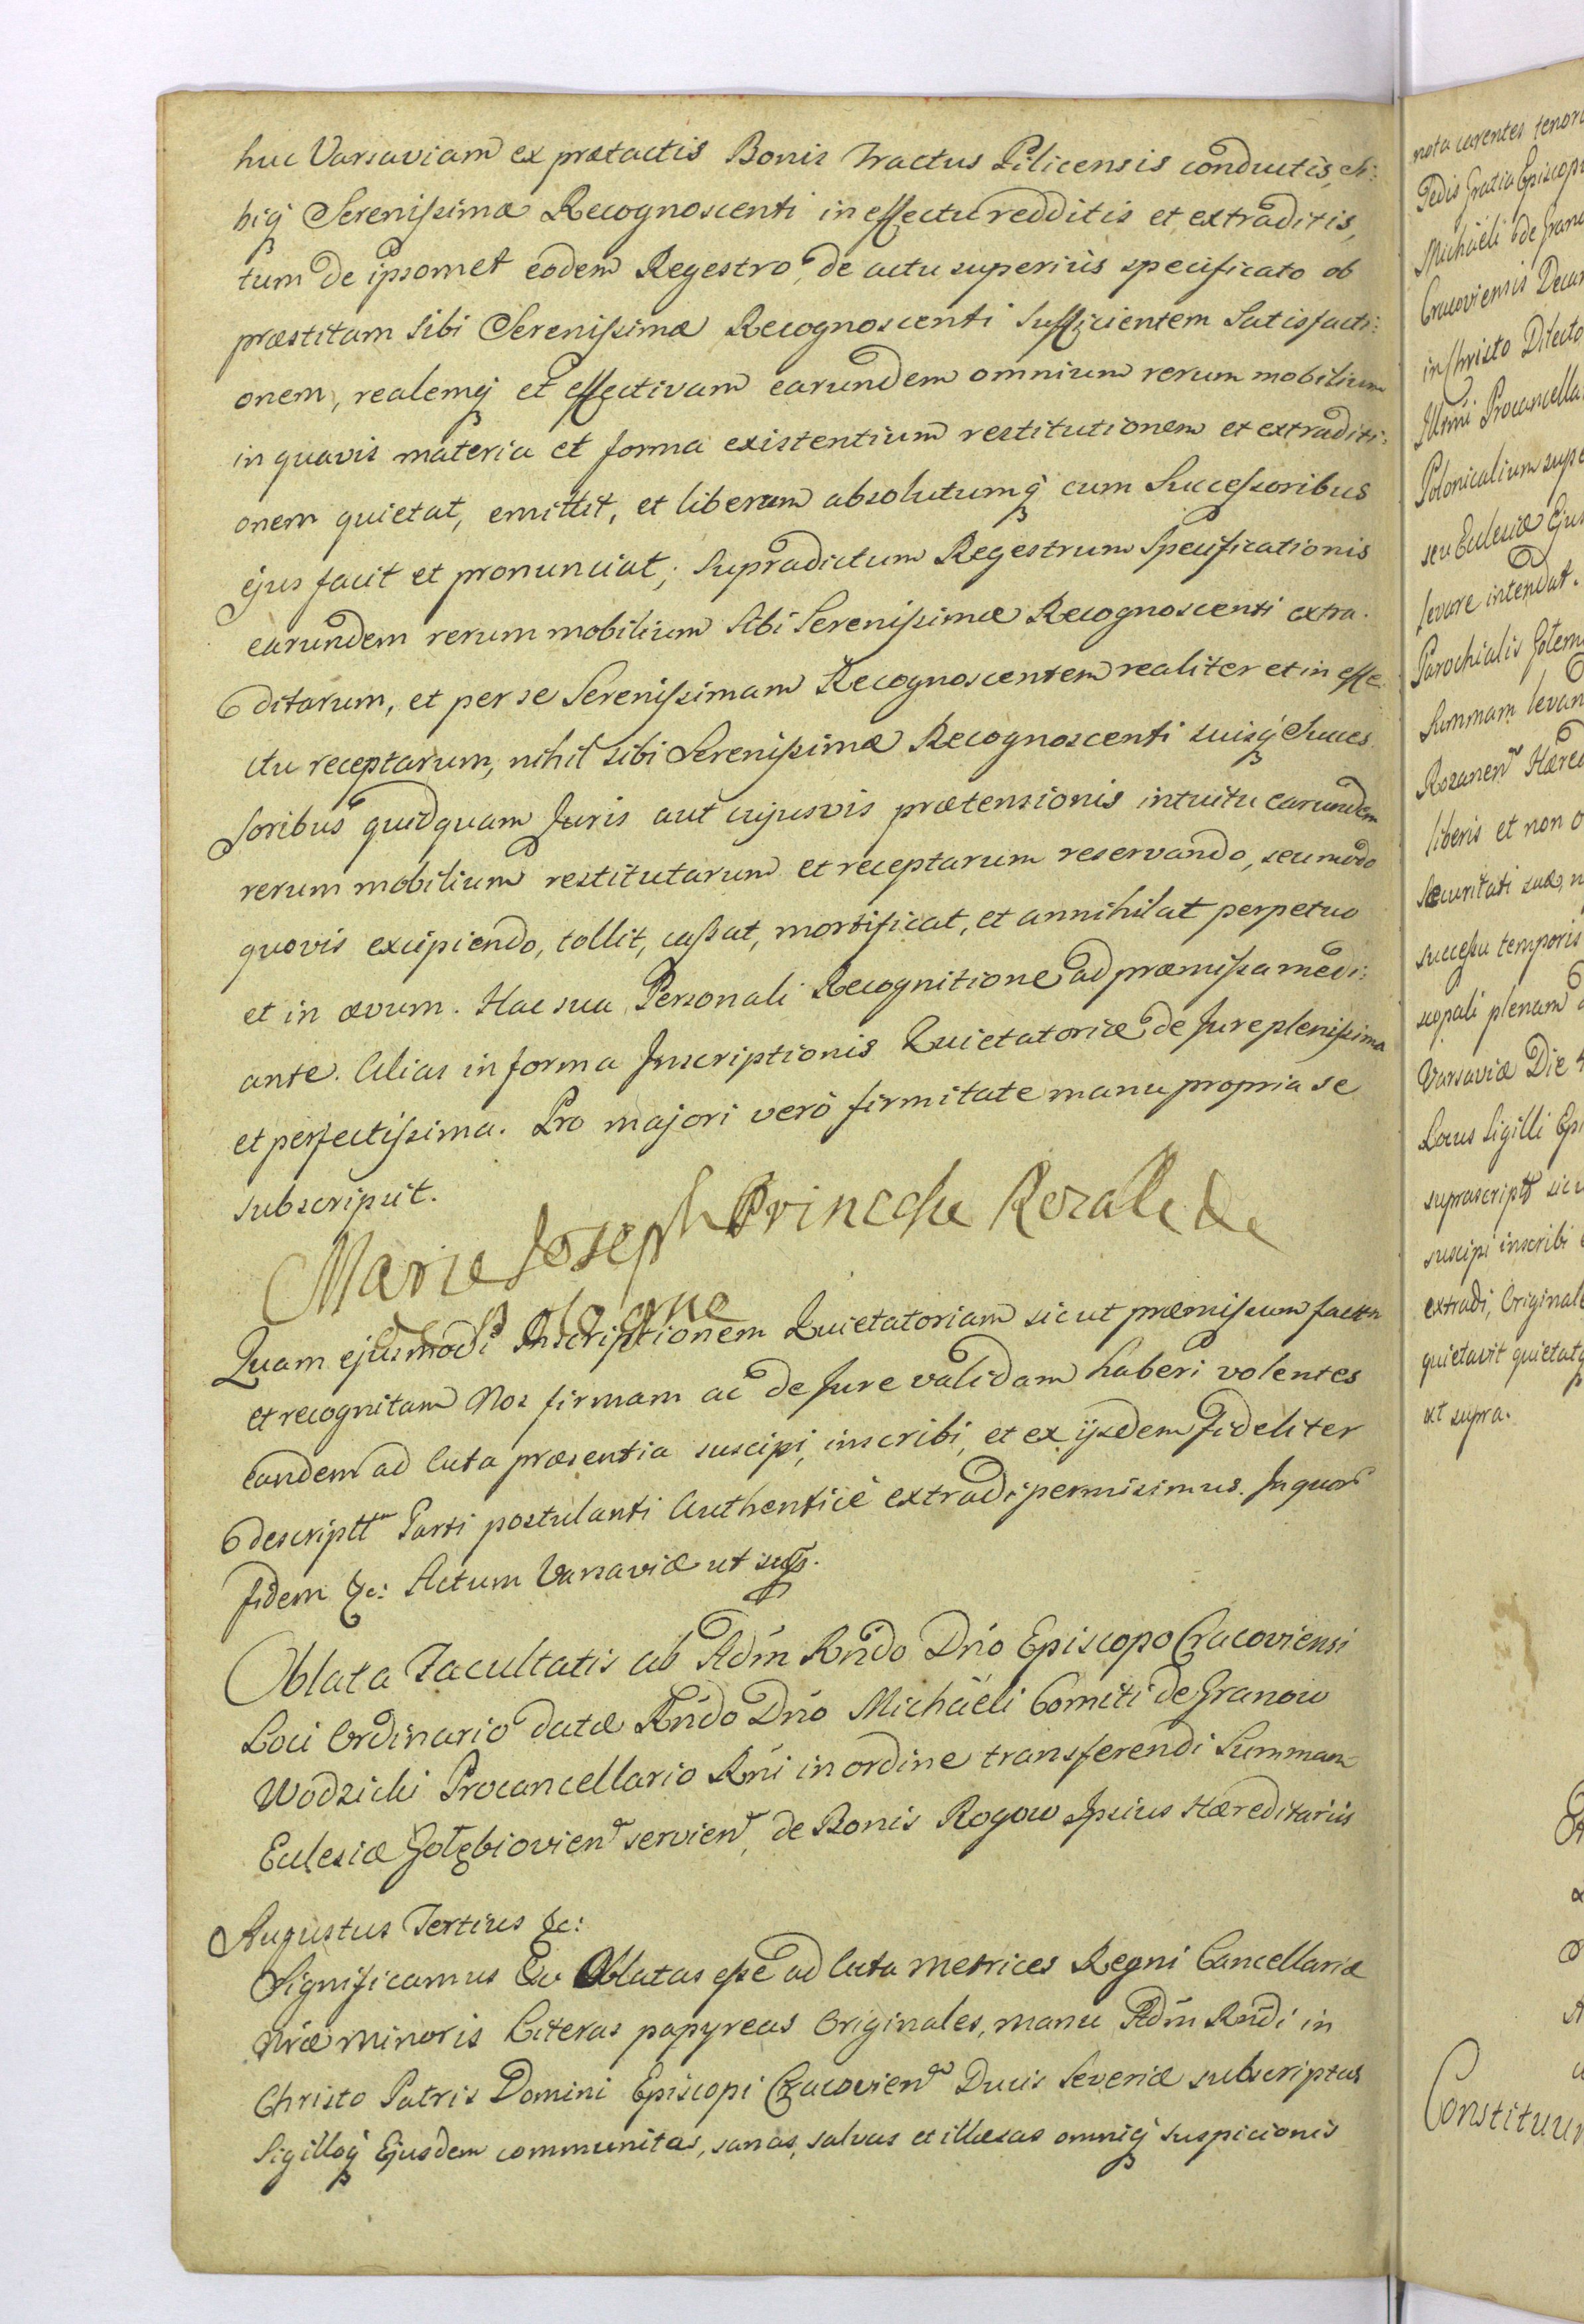 huc Varsaviam ex prætactis Bonis Tractus Pilicensis conductis, si:
biq Serenissimæ Recognoscenti in effectu redditis et extraditis,
tum de ipsomet eodem Regestro, de actu superiùs specificato ob
præstitam sibi Serenissimæ Recognoscenti sufficientem Satisfacti:
onem, realemq et effectivam earundem omnium rerum mobilium
in quavis materia et forma existentium restitutionem et extraditi:
onem quietat, emittit, et liberum absolutumq cum Successoribus
ejus facit et pronunciat; supradictum Regestrum Specificationis
earundem rerum mobilium sibi Serenissimæ Recognoscenti extra:
ditarum, et per se Serenissimam Recognoscentem realiter et in effe:
ctu receptarum, nihil sibi Serenissimæ Recognoscenti suisq Succes
soribus quidquam Juris aut cujusvis prætensionis intuitu earundem
rerum mobilium restitutarum et receptarum reservando, seu modo
quovis excipiendo, tollit, cassat, mortificat, et annihilat perpetuo
et in ævum. Hac sua Personali Recognitione ad præmissa medi:
ante. Alias in forma Inscriptionis Quietatoriæ de Jure plenissima
et perfectissima. Pro majori verò firmitate manu propria se
subscripsit.
Marie Joseph Princesse Roiale de
Pologne
Quam ejusmodi Inscriptionem Quietatoriam sicut præmissum factam
et recognitam Nos firmam ac de Jure validam haberi volentes
eandem ad Acta præsentia suscipi, inscribi, et ex ijsdem fideliter
descriptt Parti postulanti Authenticè extradi permisimus. In quor
fidem &c: Actum Varsaviæ ut sup.
Oblata Facultatis ab Adm Rndo Dno Episcopo Cracoviensi
Loci Ordinario datæ Rndo Dno Michäeli Comiti de Granow
Wodzicki Procancellario Rni in ordine transferendi Summam
Eclesiæ Gołębiovien servien, de Bonis Rogow Ipsius Hæreditariis
Augustus Tertius &c:
Significamus &c Oblatas esse ad Acta Metrices Regni Cancellariæ
Nræ Minoris Literas papyreas Originales, manu Adm Rndi in
Christo Patris Domini Episcopi Cracovien Ducis Severiæ subscriptas
Sigilloq Ejusdem communitas, sanas, salvas et illæsas omniq suspicionis
nota carentes tenoris
Dei Gratia Episcopus
Michäeli de Grano
Cracoviensis Decan
in Christo Dilecto
Procancella
Polonicalium supe
seu Eclesiæ Ejus
levare intendat.
Parochialis Gołem
Summam levan
Hæred
liberis et non o
Securitati suæ, n
successu temporis
scopali plenam
Varsaviæ Die 4
Locus Sigilli Epi
suprascriptt sicu
suscipi inscribi
extradi, Originale
quietavit quietatq
ut supra.
Constituun